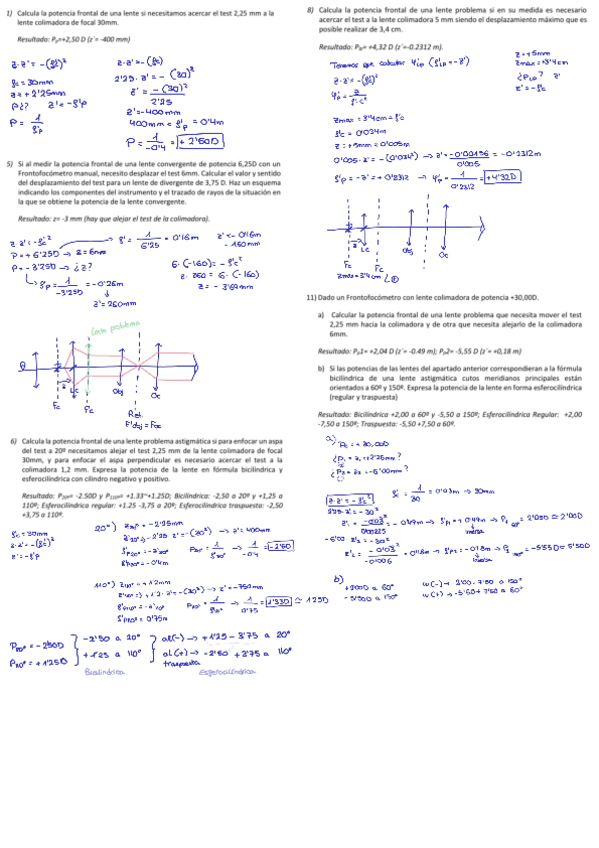 1) Calcula la potencia frontal de una lente si necesitamos acercar el test 2,25 mm a la
lente colimadora de focal 30mm.
Resultado: Pp=+2,50 D (z´= -400 mm)
z·z' = -(f'c)²
f'c = 30mm
z = +2'25mm
P¿? z' = -f'p
P = 1/f'p
z·z' = -(f'c)²
2'25·z' = -(30)²
z' = -(30)²/2'25
z' = -400mm
400mm = f'p = 0'4m
P = 1/-0'4 = +2'50D
5) Si al medir la potencia frontal de una lente convergente de potencia 6,25D con un
Frontofocómetro manual, necesito desplazar el test 6mm. Calcular el valor y sentido
del desplazamiento del test para un lente de divergente de 3,75 D. Haz un esquema
indicando los componentes del instrumento y el trazado de rayos de la situación en
la que se obtiene la potencia de la lente convergente.
Resultado: z= -3 mm (hay que alejar el test de la colimadora).
z·z' = -f'c²
P = +6'25D → z = 6mm
P = -3'25D → ¿z?
f' = 1/6'25 = 0'16m
z' = -0'16m
-160mm
f'p = 1/-3'25D = -0'26m
z' = 260mm
6·(-160) = -f'c²
z·260 = 6·(-160)
z = -3'69mm
Lente problema
z
Lc
Fc
Fc
Obj
Oc
Ret.
F'obj = Foc
6) Calcula la potencia frontal de una lente problema astigmática si para enfocar un aspa
del test a 20º necesitamos alejar el test 2,25 mm de la lente colimadora de focal
30mm, y para enfocar el aspa perpendicular es necesario acercar el test a la
colimadora 1,2 mm. Expresa la potencia de la lente en fórmula bicilíndrica y
esferocilíndrica con cilindro negativo y positivo.
Resultado: P20º= -2.50D y P110º= +1.33~+1.25D; Bicilíndrica: -2,50 a 20º y +1,25 a
110º; Esferocilíndrica regular: +1.25 -3,75 a 20º; Esferocilíndrica traspuesta: -2,50
+3,75 a 110º.
f'c = 30mm
z·z' = -(f'c)²
z' = -f'p
20º) z20º = -2'25mm
-2'25·z' = -(30²) → z' = 400mm
f'p20º = -z'20º
f'p20º = -0'4m
P20º = 1/f'20º → 1/-0'4 = -2'50
110º) z110º = +1'2mm
+1'2·z' = -(30²) → z' = -750mm
f'p110º = 0'75m
→ 1/0'75 = 1'33D ≃ 1'25D
P20º = -2'50D
P110º = +1'25D
-2'50 a 20º
+1'25 a 110º
Bicilíndrica
al(-) → +1'25 -3'75 a 20º
al(+) → -2'50 +3'75 a 110º
traspuesta
Esferocilíndrica
8) Calcula la potencia frontal de una lente problema si en su medida es necesario
acercar el test a la lente colimadora 5 mm siendo el desplazamiento máximo que es
posible realizar de 3,4 cm.
Resultado: PB= +4,32 D (z´=-0.2312 m).
Tenemos que calcular φ'p (f'p = -z')
z = +5mm
zmax = +3'4cm
z·z' = -(f'c)²
zmax = 3'4cm = f'c
f'c = 0'034m
z = +5mm = 0'005m
0'005·z' = -(0'034²) → z' = -0'00156/0'005 = -0'2312m
f'p = -z' = +0'2312 → φ'p = 1/0'2312 = +4'32D
z
Lc
Fc
Fc
Obj
Oc
zmax = 3'4cm
11) Dado un Frontofocómetro con lente colimadora de potencia +30,00D.
a) Calcular la potencia frontal de una lente problema que necesita mover el test
2,25 mm hacia la colimadora y de otra que necesita alejarlo de la colimadora
6mm.
Resultado: Pp1= +2,04 D (z´= -0.49 m); Pp2= -5,55 D (z´= +0,18 m)
b) Si las potencias de las lentes del apartado anterior correspondieran a la fórmula
bicilíndrica de una lente astigmática cutos meridianos principales están
orientados a 60º y 150º. Expresa la potencia de la lente en forma esferocilíndrica
(regular y traspuesta)
Resultado: Bicilíndrica +2,00 a 60º y -5,50 a 150º; Esferocilíndrica Regular: +2,00
-7,50 a 150º; Traspuesta: -5,50 +7,50 a 60º.
a)
Pc = +30,00D
¿P1 = z1 = +2'25mm?
¿P2 = z2 = -6'00mm?
z·z' = -f'c²
f'c = 1/30 = 0'03m → 30mm
b)
+2'00D a 60º
-5'50D a 150º
w(-) → 2'00 -7'50 a 150º
w(+) → -5'50 +7'50 a 60º